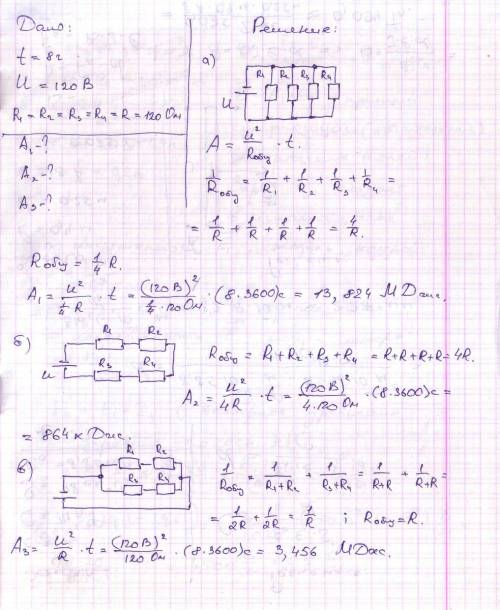 Дано:
t = 8г
U = 120 В
R₁ = R₂ = R₃ = R₄ = R = 120 Ом
A₁ - ?
A₂ - ?
A₃ - ?
Решение:
а)
R₁ R₂ R₃ R₄
U
A = U²/Rобщ · t.
1/Rобщ = 1/R₁ + 1/R₂ + 1/R₃ + 1/R₄ =
= 1/R + 1/R + 1/R + 1/R = 4/R.
Rобщ = 1/4 R.
A₁ = U²/(1/4 R) · t = (120 В)²/(1/4 · 120 Ом) · (8·3600)с = 13,824 МДж.
б)
R₁ R₂
R₃ R₄
U
Rобщ = R₁ + R₂ + R₃ + R₄ = R+R+R+R = 4R.
A₂ = U²/4R · t = (120 В)²/(4·120 Ом) · (8·3600)с =
= 864 кДж.
в)
R₁ R₂
R₃ R₄
1/Rобщ = 1/(R₁+R₂) + 1/(R₃+R₄) = 1/(R+R) + 1/(R+R) =
= 1/2R + 1/2R = 1/R і Rобщ = R.
A₃ = U²/R · t = (120 В)²/120 Ом · (8·3600)с = 3,456 МДж.